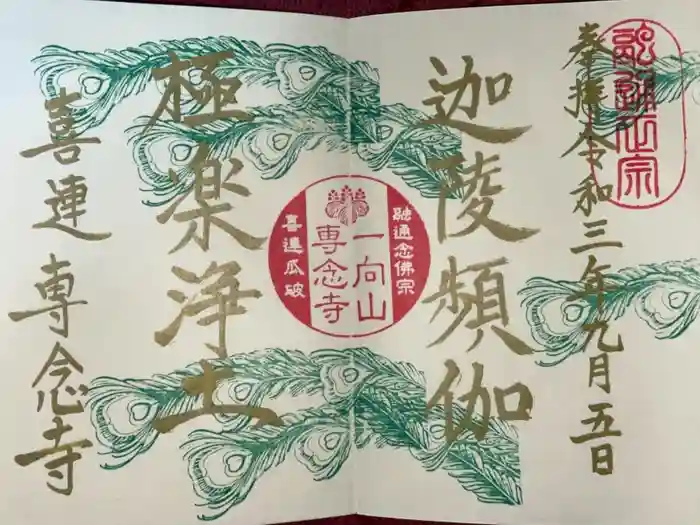 奉拝 令和三年九月五日
融通念佛宗
迦陵頻伽
融通念佛宗
一向山
専念寺
喜連瓜破
極楽浄土
喜連 専念寺